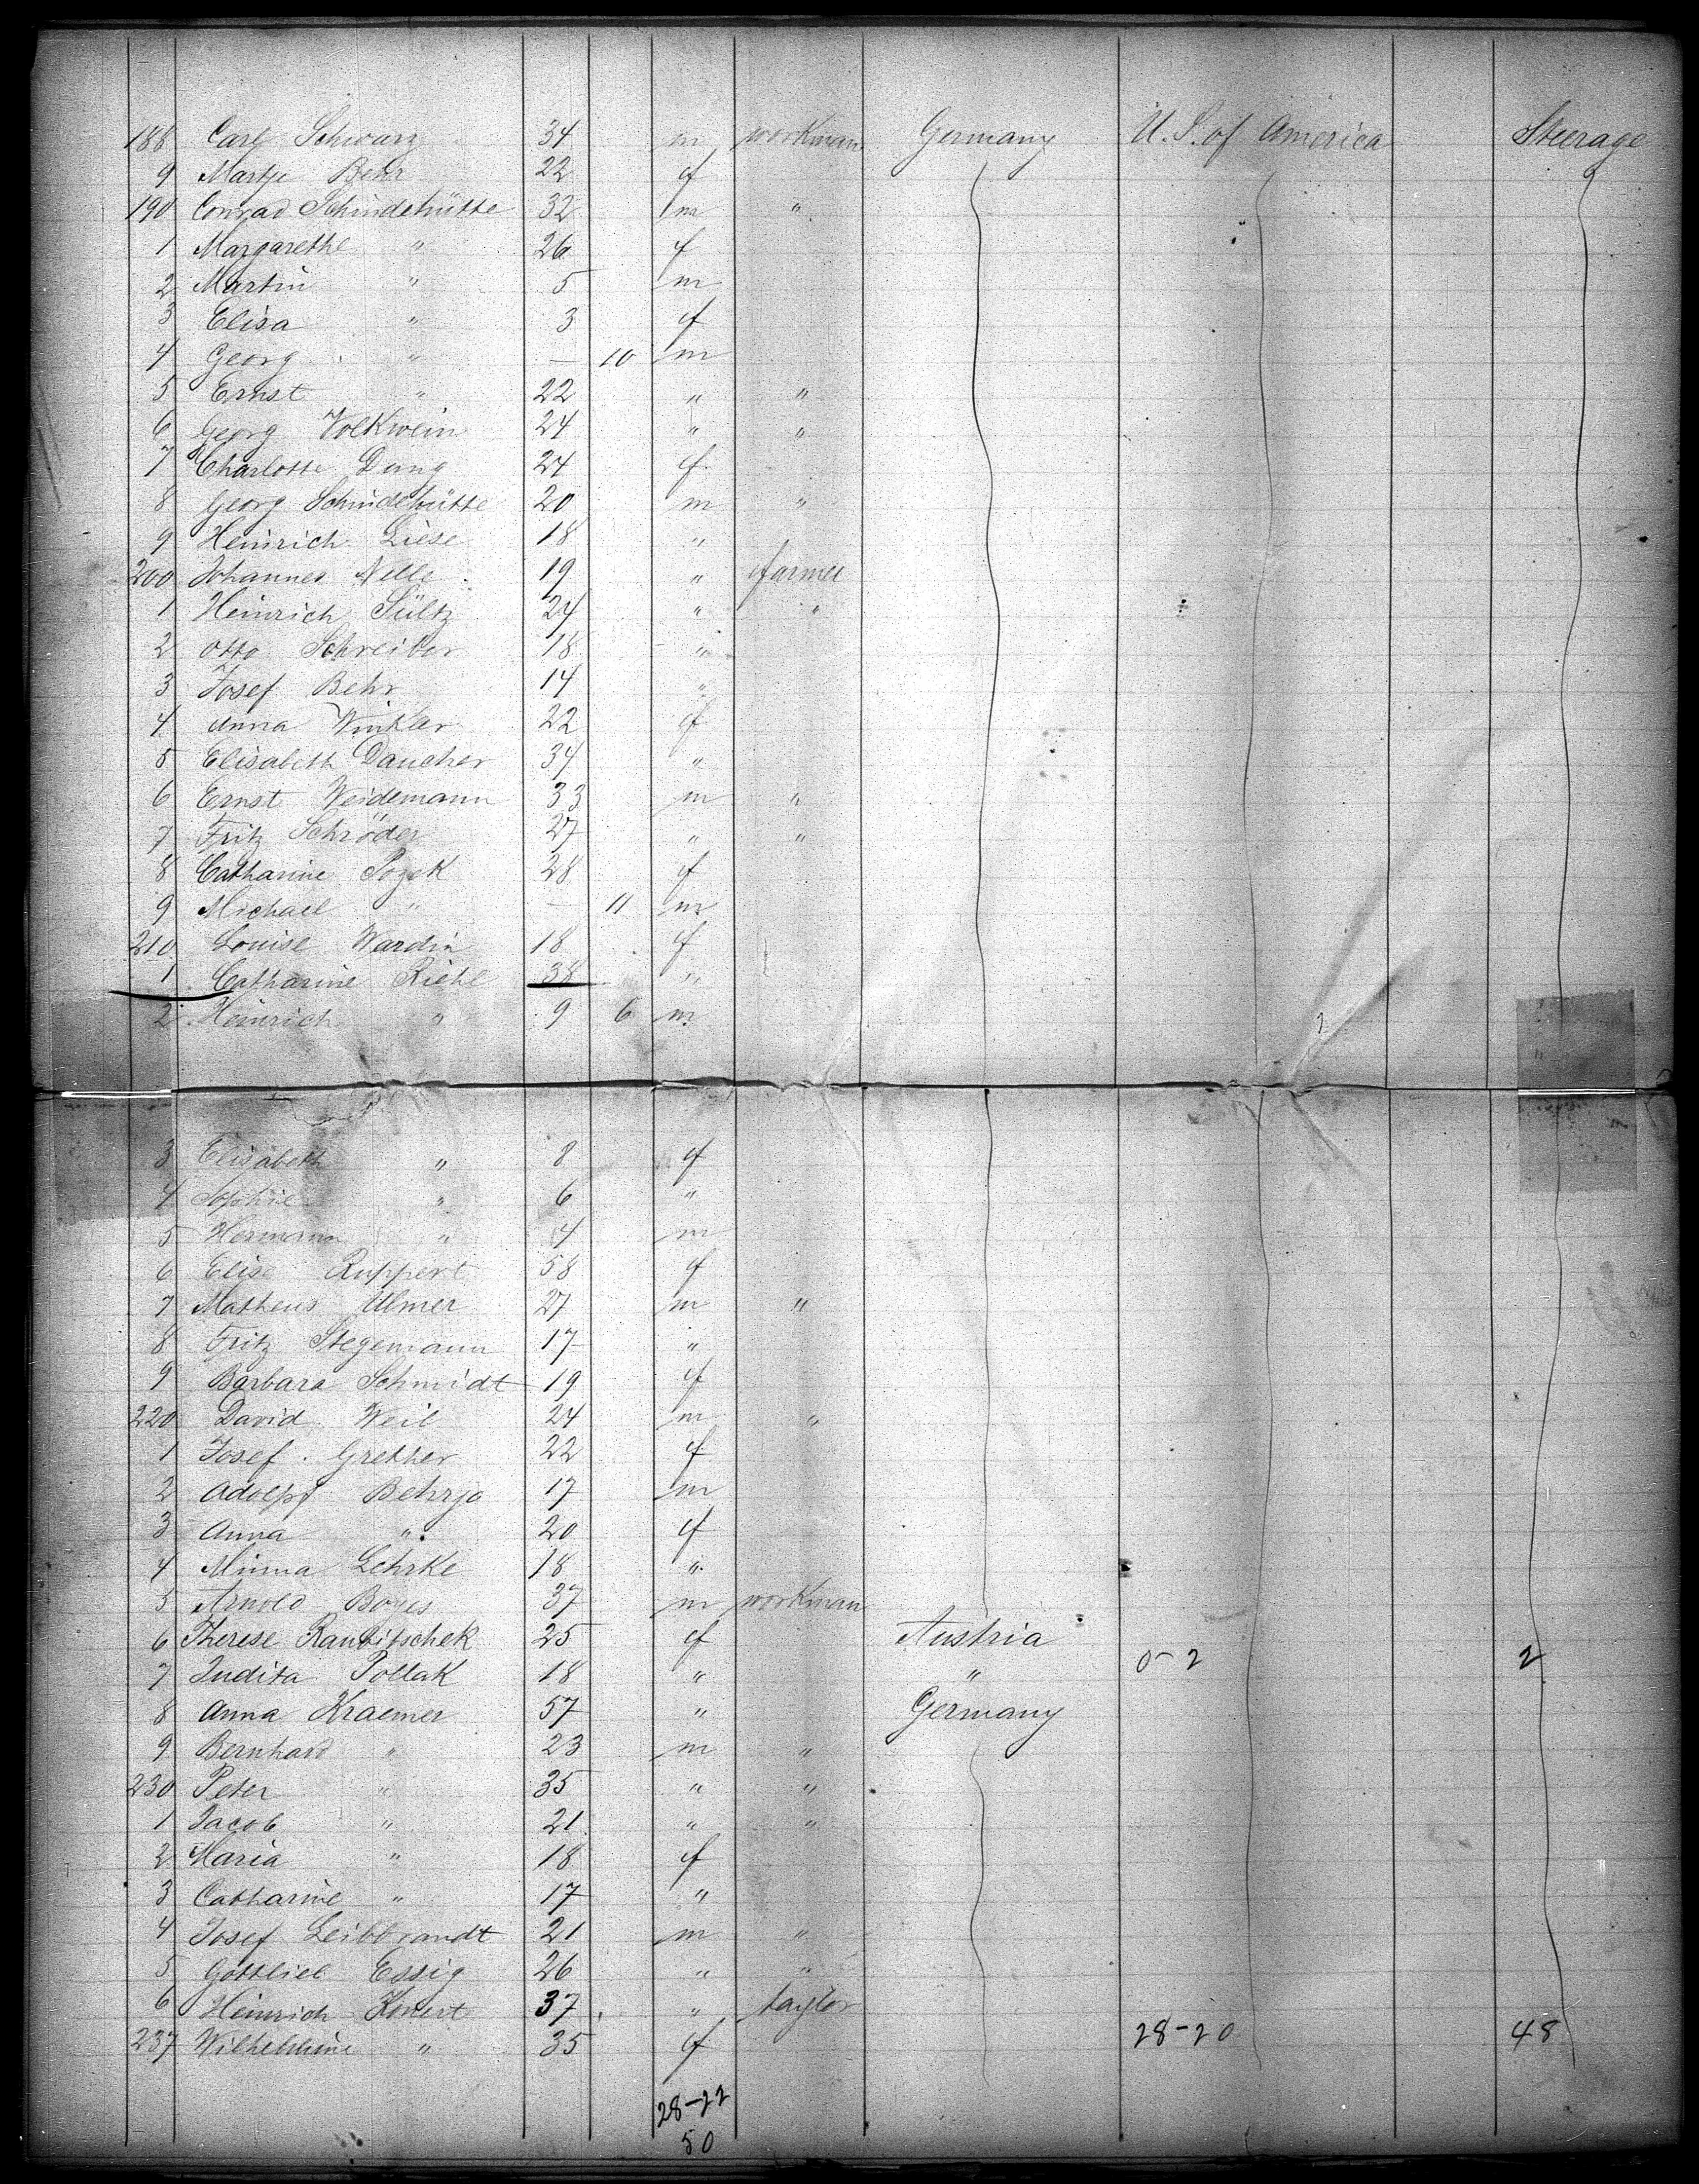 188 Carl Schwarz 34 m workman Germany U.S. of America Steerage
9 Martje Behr 22 f
190 Conrad Schindehütte 32 m "
1 Margarethe " 26 f
2 Martin " 5 m
3 Elisa " 3 f
4 Georg " — 10 m
5 Ernst " 22 " "
6 Georg Volkwein 24 " "
7 Charlotte Dang 24 f
8 Georg Schindehütte 20 m "
9 Heinrich Liese 18 "
200 Johannes Nelle 19 " farmer
1 Heinrich Sültz 24 " "
2 Otto Schreiber 18 "
3 Josef Behr 14 "
4 Anna Winkler 22 f
5 Elisabeth Daucher 34 "
6 Ernst Weidemann 33 m "
7 Fritz Schröder 27 " "
8 Catharine Pozek 28 f
9 Michael " — 11 m
210 Louise Wardin 18 f
1 Catharine Riehl 38 "
2 Heinrich " 9 6 m
3 Elisabeth " 8 f
4 Sophie " 6 "
5 Hermann " 4 m
6 Elise Ruppert 58 f
7 Matheus Ulmer 27 m "
8 Fritz Stegemann 17 "
9 Barbara Schmidt 19 f
220 David Weil 24 m "
1 Josef Grether 22 f
2 Adolph Behrje 17 m
3 Anna " 20 f
4 Minna Lehrke 18 "
5 Arnold Boves 37 m workman
6 Therese Rambitschek 25 f Austria
7 Judita Pollak 18 " " 0-2 2
8 Anna Kraemer 57 " Germany
9 Bernhard " 23 m "
230 Peter " 35 " "
1 Jacob " 21 " "
2 Maria " 18 f
3 Catharine " 17 "
4 Josef Leibbrandt 21 m "
5 Gottlieb Essig 26 " "
6 Heinrich Konert 37 " taylor
237 Wilhelmine " 35 f 28-20 48
28-22
50